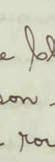 e bl
son
e ro